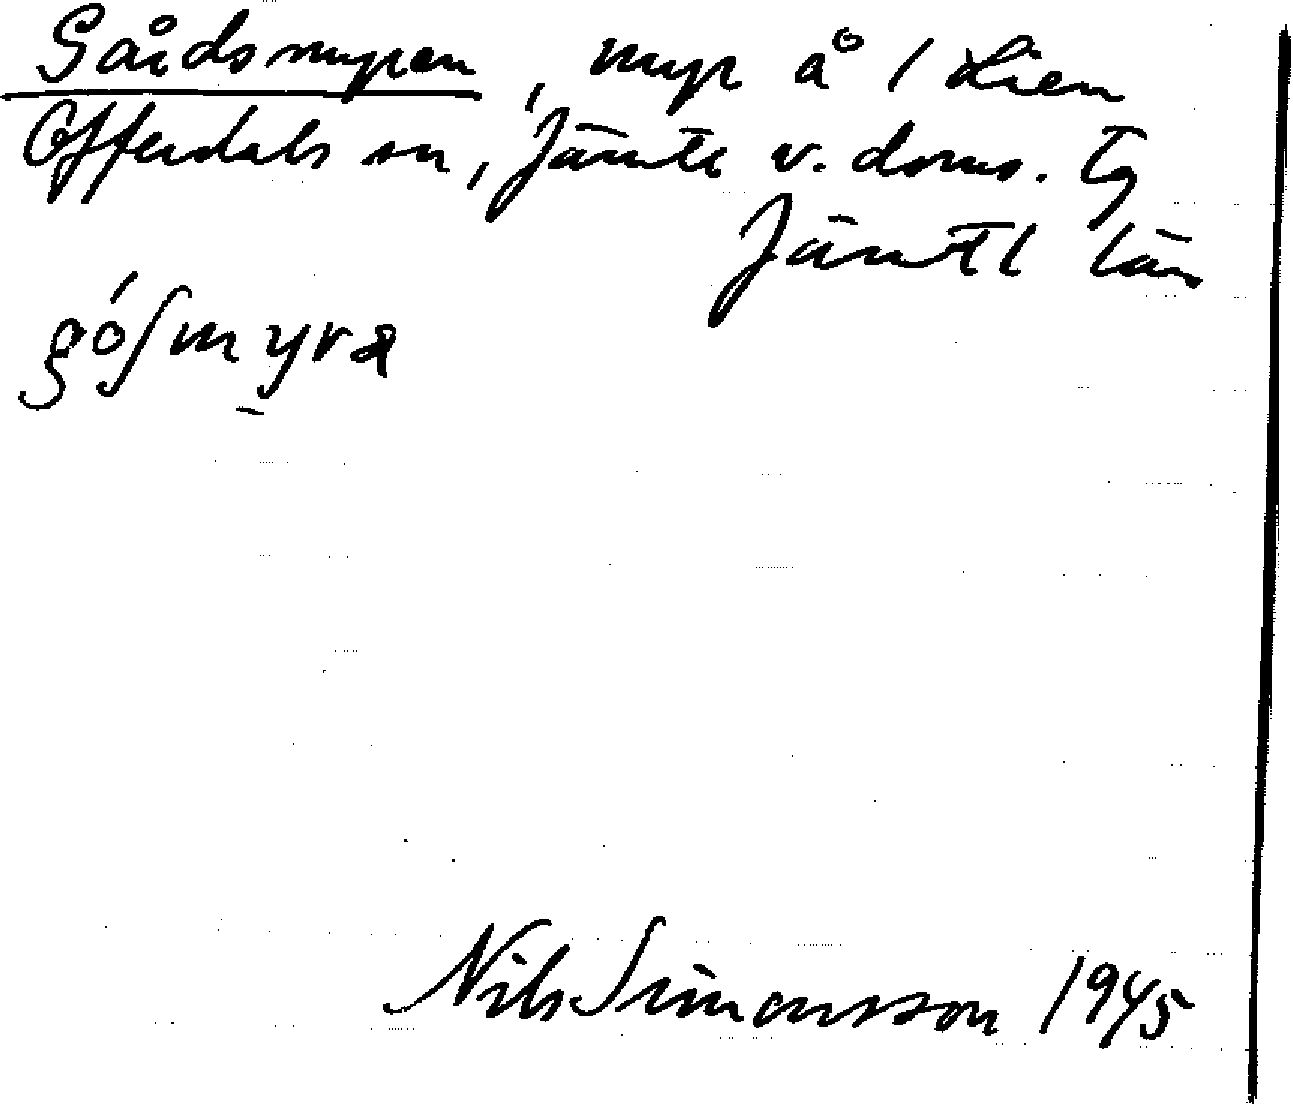 Gårdsmyren, myr å 1 Lien
Offerdals sn, Jämtl v. doms. tg
Jämtl län
gó∫myra
Nils Simonsson 1945